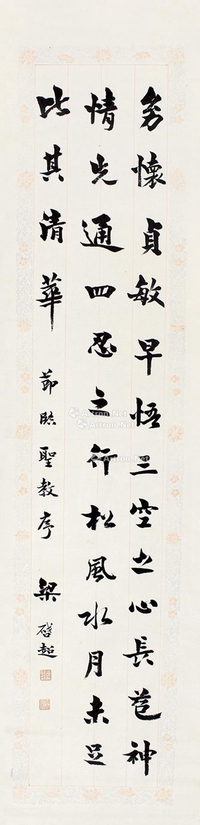 幼懷貞敏早悟三空之心長苞神
情先通四忍之行松風水月未足
比其清華 節臨聖教序 梁啓超